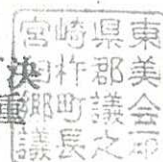 宮崎県東
臼杵郡美
郷町議会
議長之印
決